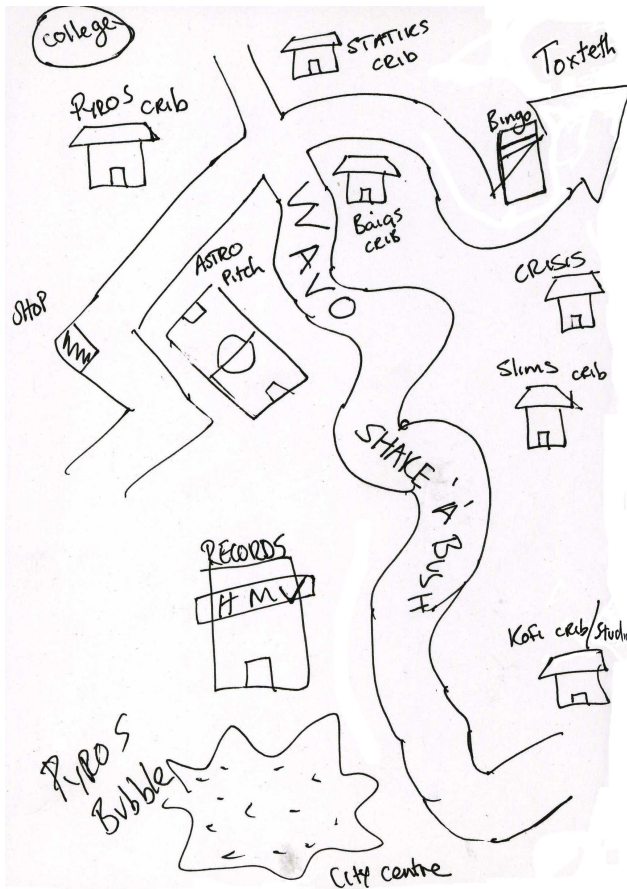 college
STATIKS
CRIB
Toxteth
PYROS CRIB
Bingo
Baigs
CRIB
WAVO
ASTRO
Pitch
CRISIS
SHOP
Slims CRIB
SHAKE 'A' BUSH
RECORDS
HMV
Kofi CRIB/Studio
PYROS
Bubble
City centre